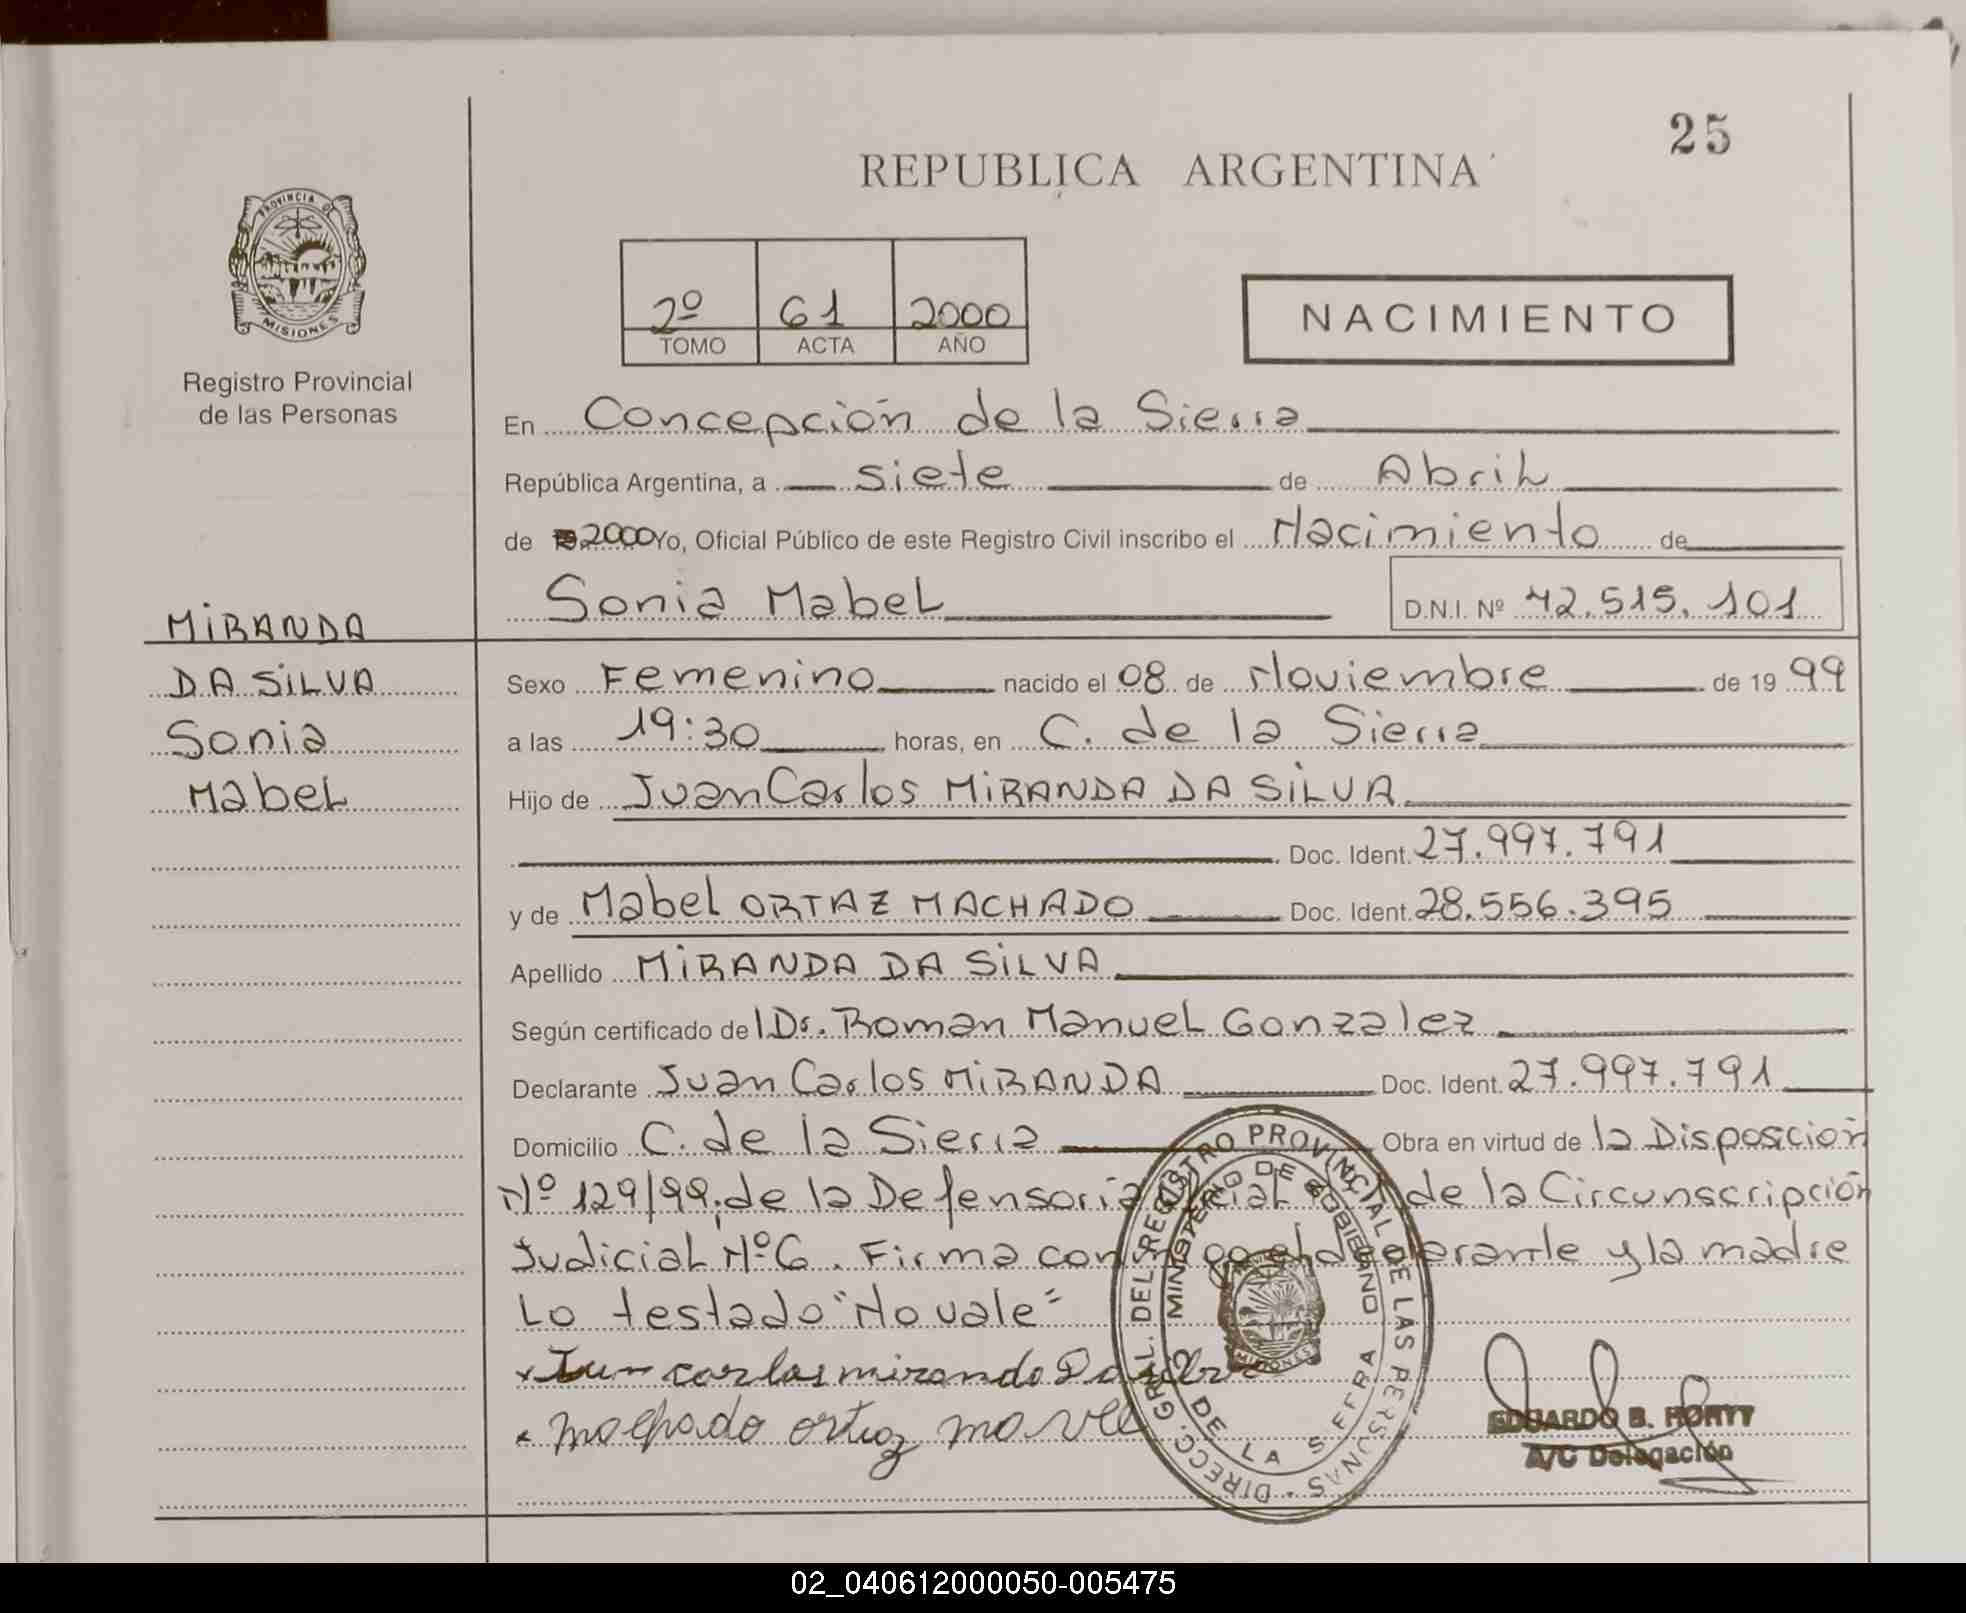 25
REPUBLICA ARGENTINA
PROVINCIA DE
MISIONES
Registro Provincial
de las Personas
2º 61 2000
TOMO ACTA AÑO
NACIMIENTO
En Concepción de la Sierra
República Argentina, a siete de Abril
de 2000 Yo, Oficial Público de este Registro Civil inscribo el Nacimiento de
Sonia Mabel D.N.I. Nº 42.515.101
MIRANDA
DA SILVA
Sonia
Mabel
Sexo Femenino nacido el 08 de Noviembre de 19 99
a las 19:30 horas, en C. de la Sierra
Hijo de Juan Carlos MIRANDA DA SILVA
Doc. Ident. 27.997.791
y de Mabel ORTAZ MACHADO Doc. Ident. 28.556.395
Apellido MIRANDA DA SILVA
Según certificado del Dr. Roman Manuel Gonzalez
Declarante Juan Carlos MIRANDA Doc. Ident. 27.997.791
Domicilio C. de la Sierra Obra en virtud de la Disposcion
Nº 129/99, de la Defensoria de la Circunscripción
Judicial Nº6. Firma el declarante y la madre
Lo testado "No vale"
x Juan carlos miranda Da silva
x machado ortaz mavel
DIRECC. GRAL. DEL REGISTRO PROVINCIAL DE LAS PERSONAS
MINISTERIO DE GOBIERNO
MISIONES
DE LA SIERRA
EDUARDO B. HORTT
A/C Delegación
02_040612000050-005475